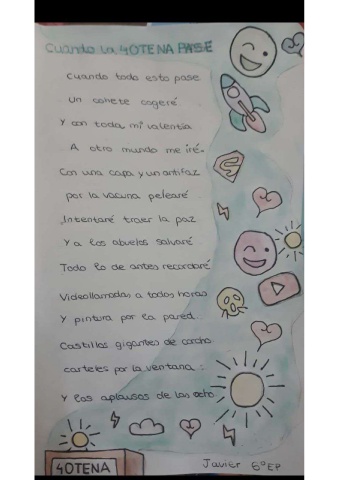 Cuando la 40TENA PASE
Cuando todo esto pase
un cohete cogeré
Y con toda mi valentía
A otro mundo me iré.
Con una capa y un antifaz
por la vacuna pelearé
Intentaré traer la paz
Y a los abuelos salvaré
Todo lo de antes recordaré
Videollamadas a todas horas
Y pintura por la pared
Castillos gigantes de corcho
carteles por la ventana
Y los aplausos de las ocho
40TENA
Javier 6º EP